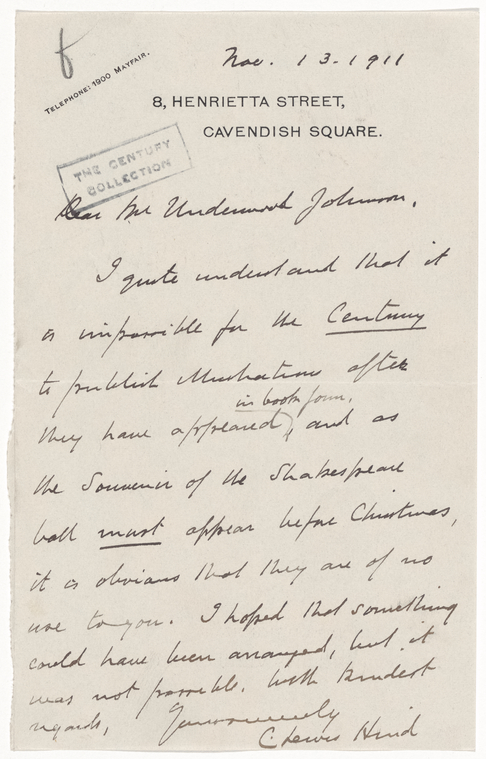 Nov. 13. 1911
TELEPHONE: 1900 MAYFAIR.
8, HENRIETTA STREET,
CAVENDISH SQUARE.
THE CENTURY
COLLECTION
Dear Mr Underwood Johnson,
I quite understand that it
is impossible for the Century
to publish illustrations after
they have appeared in book form, and as
the Souvenir of the Shakespeare
ball must appear before Christmas,
it is obvious that they are of no
use to you. I hoped that something
could have been arranged, but it
was not possible. With kindest
regards, Yours sincerely
C Lewis Hind